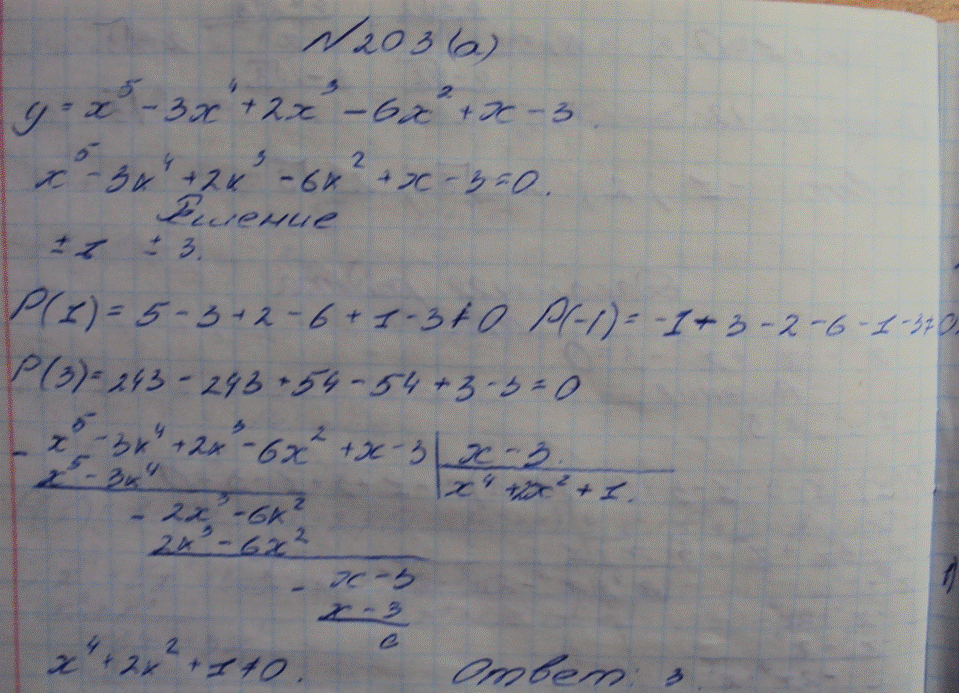 N203(а)
y = x⁵ - 3x⁴ + 2x³ - 6x² + x - 3.
x⁵ - 3x⁴ + 2x³ - 6x² + x - 3 = 0.
Решение
± 1 ± 3.
P(1) = 5 - 3 + 2 - 6 + 1 - 3 ≠ 0 P(-1) = -1 + 3 - 2 - 6 - 1 - 3 ≠ 0.
P(3) = 243 - 243 + 54 - 54 + 3 - 3 = 0
- x⁵ - 3x⁴ + 2x³ - 6x² + x - 3 | x - 3.
x⁵ - 3x⁴ | x⁴ + 2x² + 1.
- 2x³ - 6x²
2x³ - 6x²
- x - 3
x - 3
0
x⁴ + 2x² + 1 ≠ 0. Ответ: 3.
1)